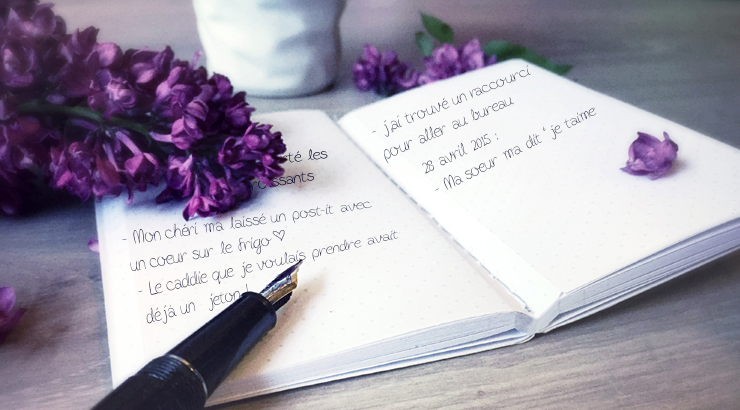 les
- Mon chéri m'a laissé un post-it avec
un coeur sur le frigo ♡
- Le caddie que je voulais prendre avait
déjà un jeton !
- j'ai trouvé un raccourci
pour aller au bureau
28 avril 2015 :
- Ma soeur m'a dit "je t'aime